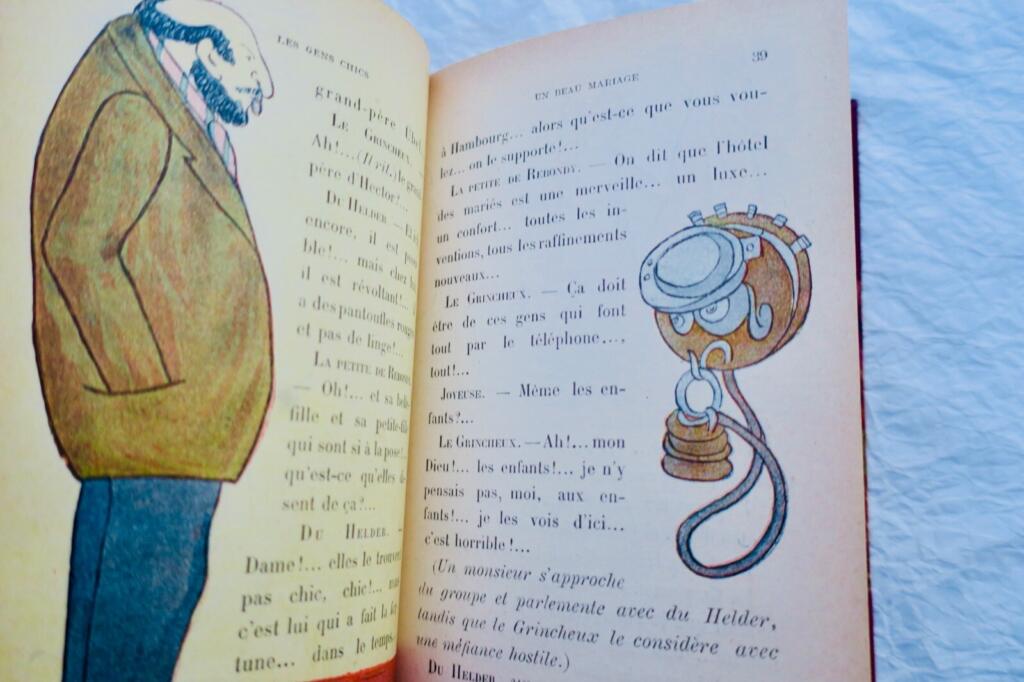 LES GENS CHICS
grand-père
LE GRINCHEUX. —
Ah!... (Il rit.) le grand-
père d'Hector!...
DU HELDER. —
encore, il est
ble!... mais chez
il est révoltant!...
a des pantoufles rouges
et pas de linge!...
LA PETITE DE REBONDY.
— Oh!... et sa belle-
fille et sa petite-fille
qui sont si à la pose!...
qu'est-ce qu'elles
sent de ça?...
DU HELDER. —
Dame!... elles le
pas chic, chic!...
c'est lui qui a fait la
tune... dans le temps
UN BEAU MARIAGE
39
à Hambourg... alors qu'est-ce que vous vou-
lez... on le supporte!...
LA PETITE DE REBONDY. — On dit que l'hôtel
des mariés est une merveille... un luxe...
un confort... toutes les in-
ventions, tous les raffinements
nouveaux...
LE GRINCHEUX. — Ça doit
être de ces gens qui font
tout par le téléphone...,
tout!...
JOYEUSE. — Même les en-
fants?...
LE GRINCHEUX. — Ah!... mon
Dieu!... les enfants!... je n'y
pensais pas, moi, aux en-
fants!... je les vois d'ici...
c'est horrible!...
(Un monsieur s'approche
du groupe et parlemente avec du Helder,
tandis que le Grincheux le considère avec
une méfiance hostile.)
DU HELDER,